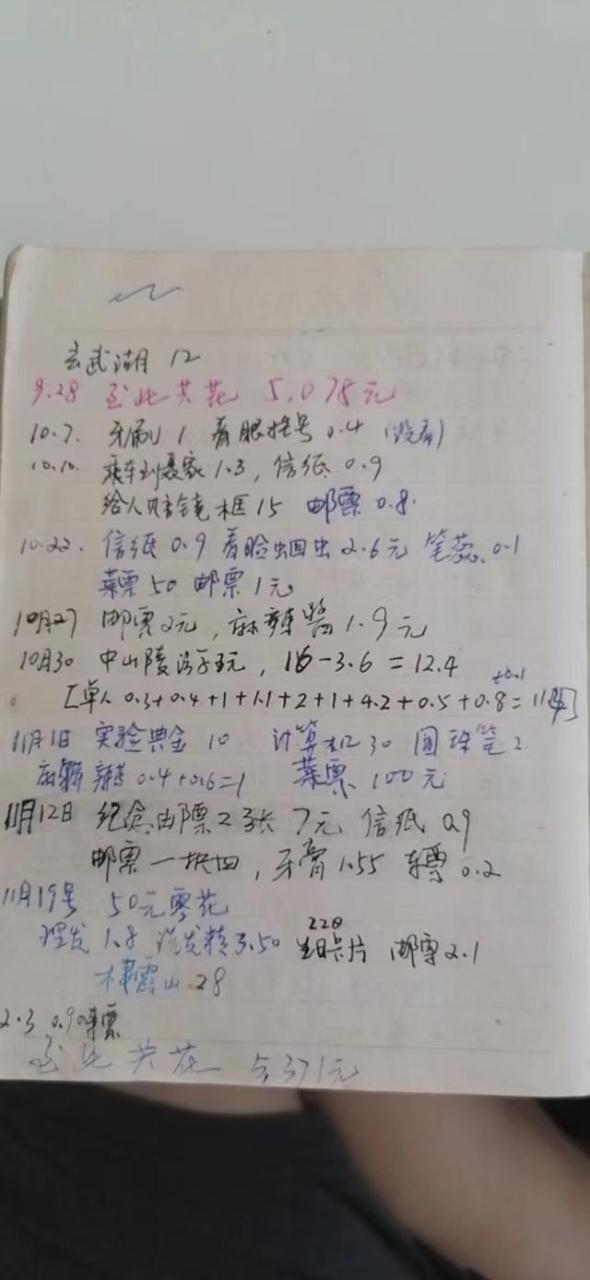 玄武湖 12
9.28 至此共花 5.075元
10.7. 牙刷 1 看眼挂号 0.4 (没看)
10.10. 乘车到聂家 1.3, 信纸 0.9
给人赔镜框 15 邮票 0.8
10.22. 信纸 0.9 看脸蛔虫 2.6元 笔蕊 0.1
菜票 50 邮票 1元
10月27 邮票2元, 麻辣酱 1.9元
10月30 中山陵游玩, 16-3.6=12.4
[单人 0.3+0.4+1+1.1+2+1+4.2+0.5+0.8 +0.1 =
11月1日 实验典金 10 计算机 30 圆珠笔 2
麻辣 0.4+0.6=1 菜票 100元
11月12日 纪念邮票2张 7元 信纸 0.9
邮票一块四, 牙膏 1.55 车票 0.2
11月19号 50元零花
理发 1.8 洗发精 3.50 生日卡片 2.20 邮票 2.1
栖霞山 28
2.3 0.90
至此共花 5371元